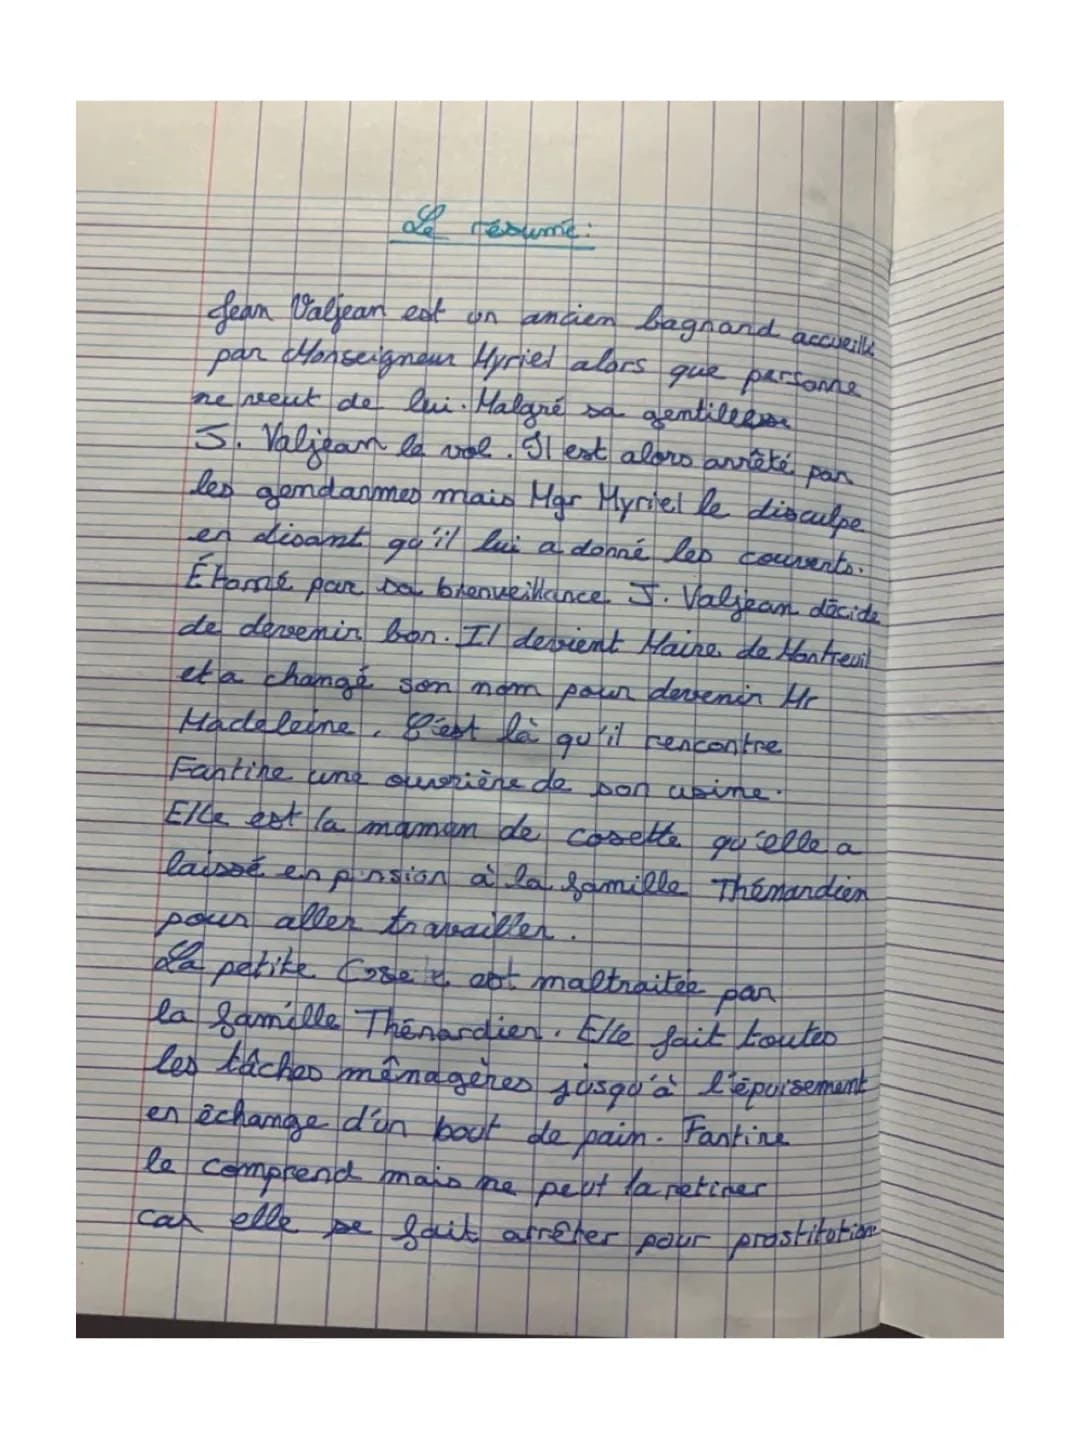 Le résumé:
Jean Valjean est un ancien bagnard accueilli
par Monseigneur Myriel alors que personne
ne veut de lui. Malgré sa gentillesse
J. Valjean le vol. Il est alors arrêté par
les gendarmes mais Mgr Myriel le disculpe
en disant qu'il lui a donné les couverts.
Étonné par sa bienveillance J. Valjean décide
de devenir bon. Il devient Maire de Montreuil
et a changé son nom pour devenir Mr
Madeleine. C'est là qu'il rencontre
Fantine une ouvrière de son usine.
Elle est la maman de cosette qu'elle a
laissé en pension à la famille Thénardien
pour aller travailler.
La petite Cosette est maltraitée par
la famille Thénardien. Elle fait toutes
les tâches ménagères jusqu'à l'épuisement
en échange d'un bout de pain. Fantine
le comprend mais ne peut la retirer
car elle se fait arrêter pour prostitution